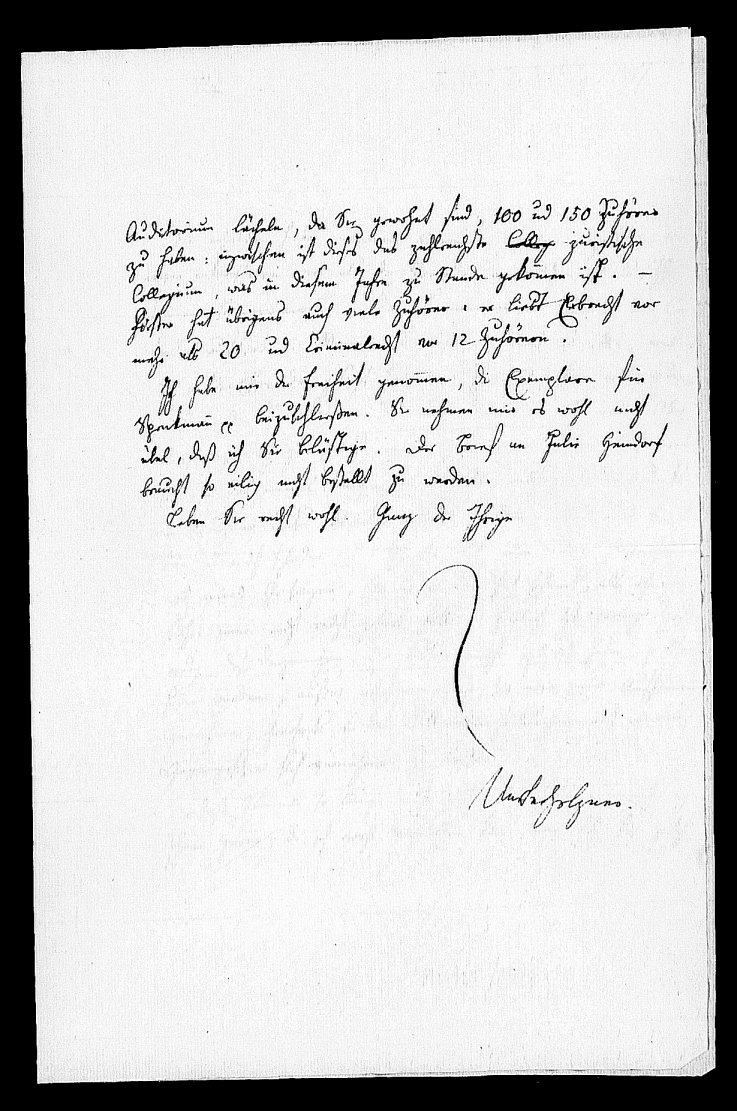 Auditorium lächeln, da Sie gewohnt sind, 100 und 150 Zuhörer
zu haben: inzwischen ist dieses das zahlreichste Colleg juristische
Collegium, was in diesem Jahre zu Stande gekommen ist. –
hat übrigens auch viele Zuhörer: er liest Erbrecht vor
mehr als 20 und Criminalrecht vor 12 Zuhörern.
Ich habe mir die Freiheit genommen, die Exemplare für
beizuschließen. Sie nehmen mir es wohl nicht
übel, daß ich Sie belästige. Der Brief an Julie Heindorf
braucht so eilig nicht bestellt zu werden.
Leben Sie recht wohl. Ganz der Ihrige
Unterholzner.